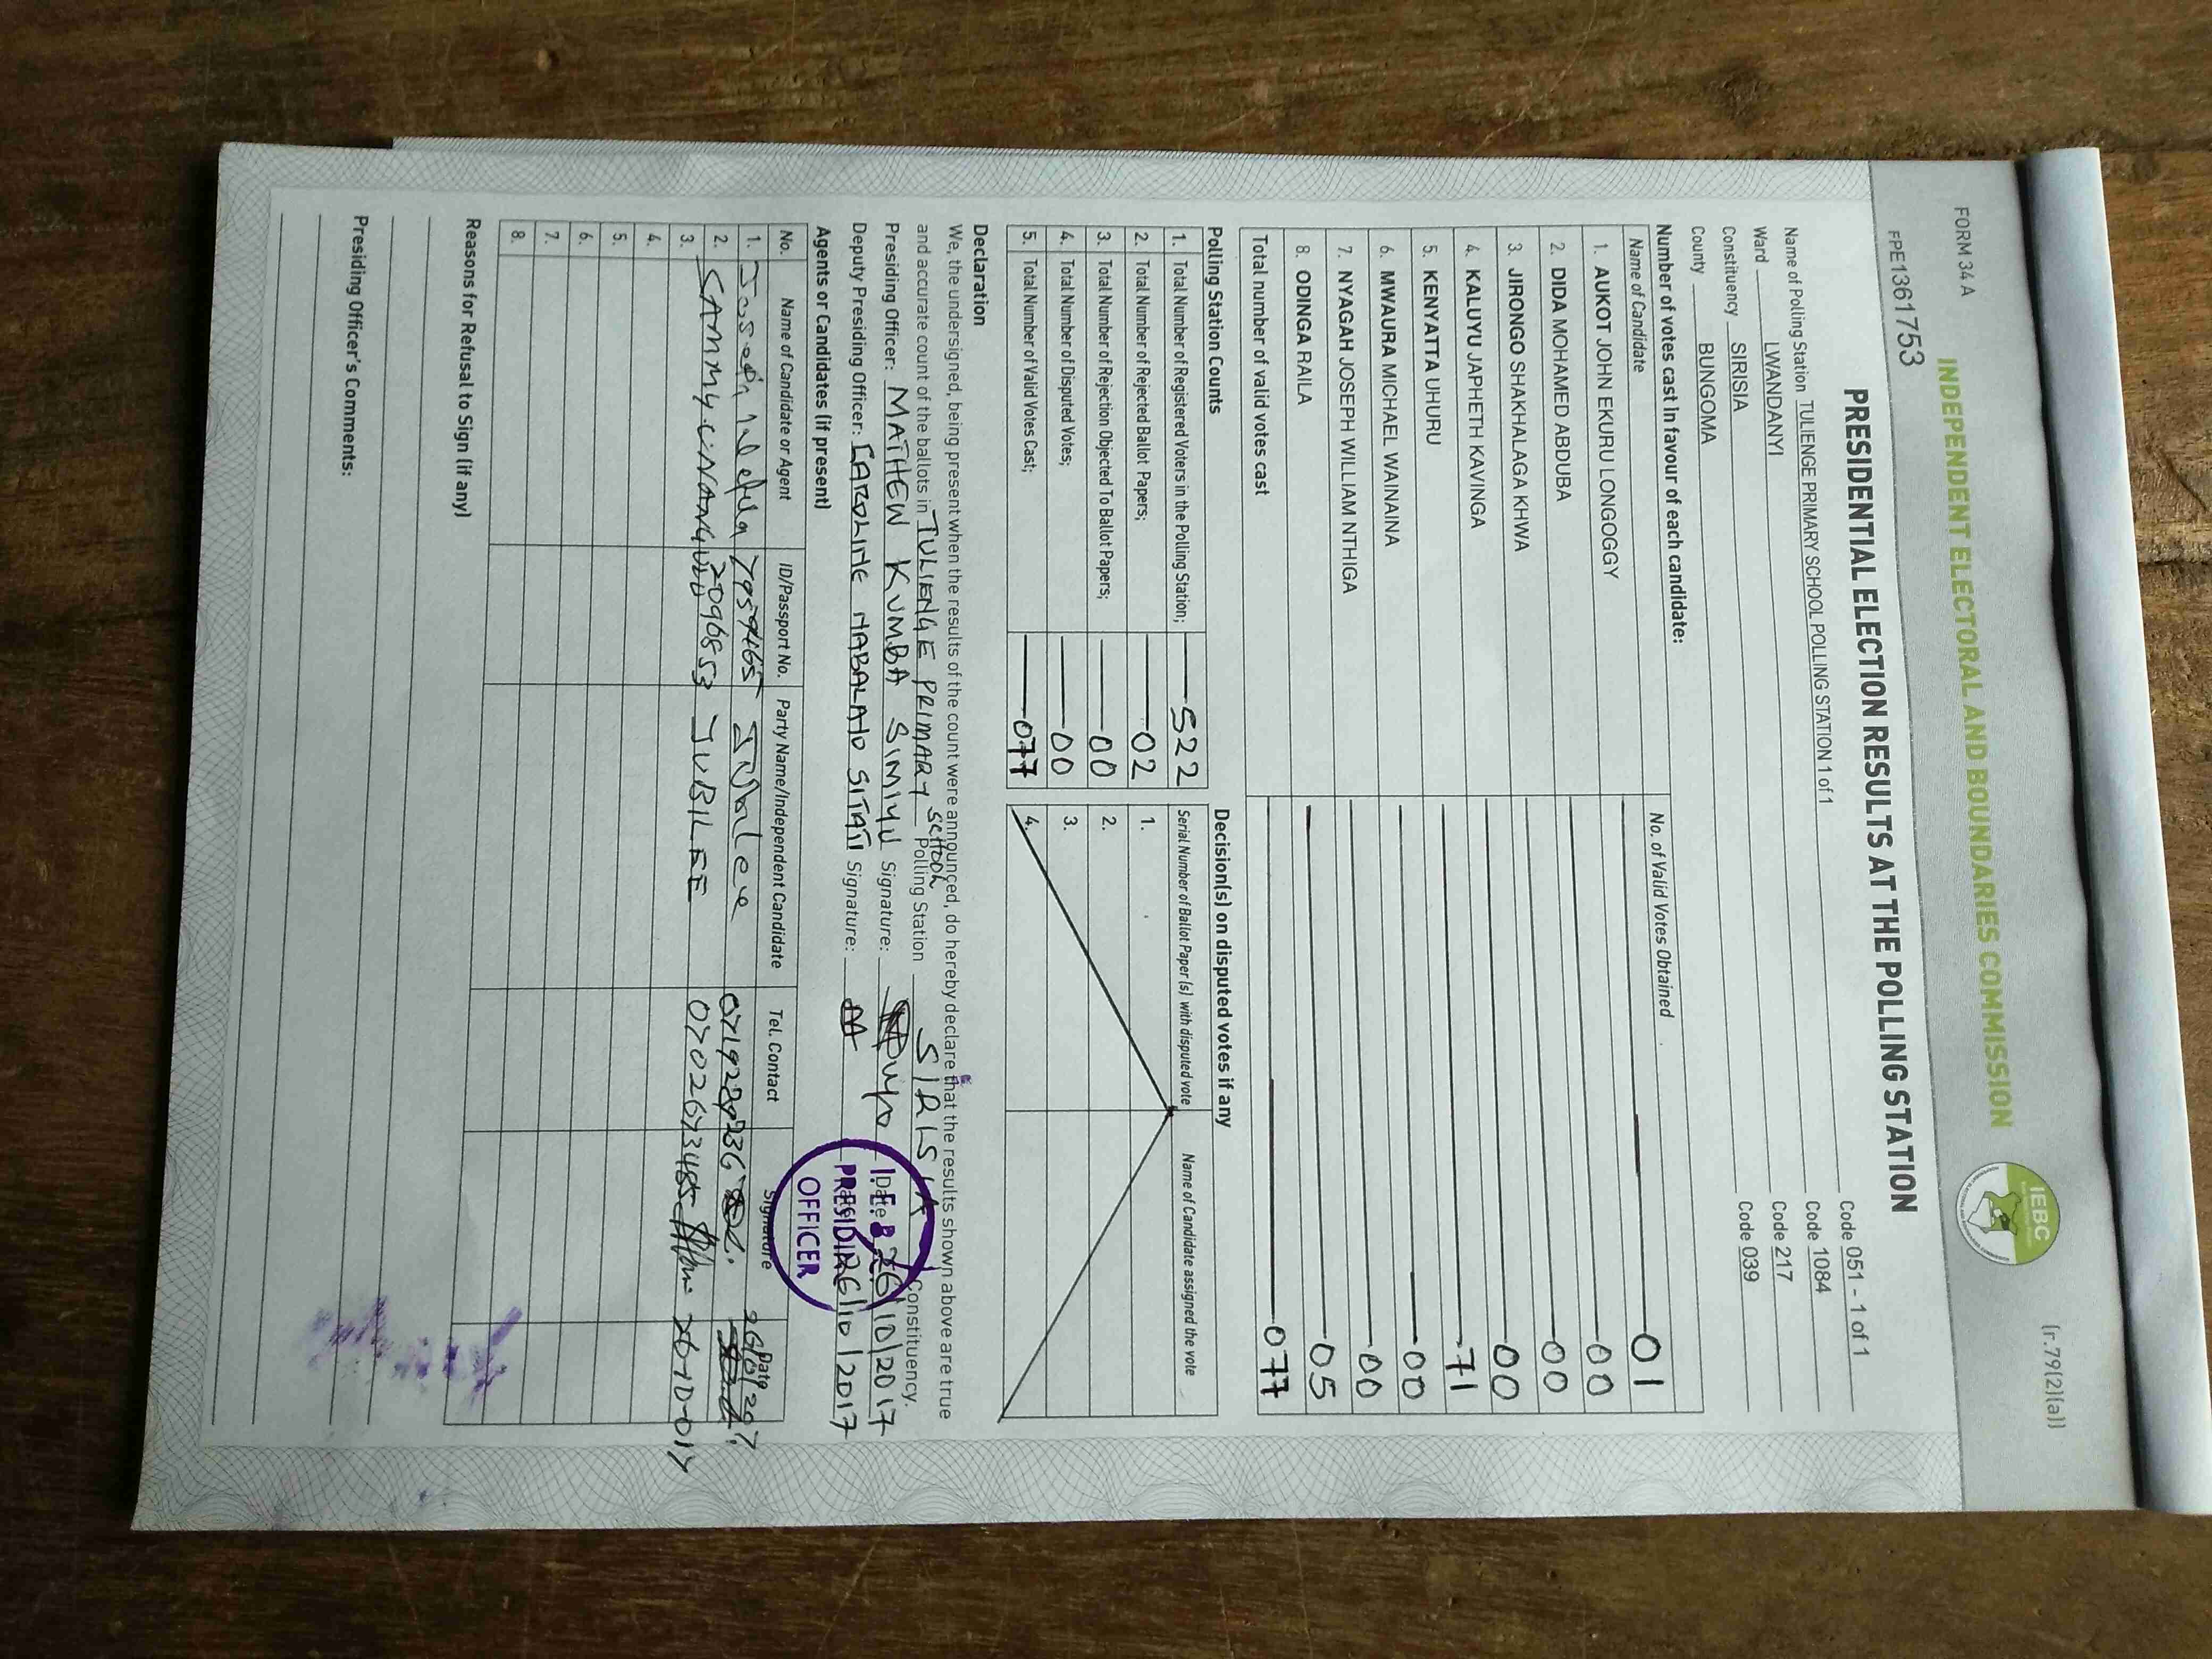 FORM 34 A
(r.79(2)(a))
INDEPENDENT ELECTORAL AND BOUNDARIES COMMISSION
IEBC
FPE1361753
PRESIDENTIAL ELECTION RESULTS AT THE POLLING STATION
Name of Polling Station TULIENGE PRIMARY SCHOOL POLLING STATION 1 of 1 Code 051 - 1 of 1
Ward LWANDANYI Code 1084
Constituency SIRISIA Code 217
County BUNGOMA Code 039
Number of votes cast in favour of each candidate:
Name of Candidate No. of Valid Votes Obtained
1. AUKOT JOHN EKURU LONGOGGY 01
2. DIDA MOHAMED ABDUBA 00
3. JIRONGO SHAKHALAGA KHWA 00
4. KALUYU JAPHETH KAVINGA 00
5. KENYATTA UHURU 71
6. MWAURA MICHAEL WAINAINA 00
7. NYAGAH JOSEPH WILLIAM NTHIGA 00
8. ODINGA RAILA 05
Total number of valid votes cast 077
Polling Station Counts
1. Total Number of Registered Voters in the Polling Station; 522
2. Total Number of Rejected Ballot Papers; 02
3. Total Number of Rejection Objected To Ballot Papers; 00
4. Total Number of Disputed Votes; 00
5. Total Number of Valid Votes Cast; 077
Decision(s) on disputed votes if any
Serial Number of Ballot Paper(s) with disputed vote Name of Candidate assigned the vote
1.
2.
3.
4.
Declaration
We, the undersigned, being present when the results of the count were announced, do hereby declare that the results shown above are true
and accurate count of the ballots in TULIENGE PRIMARY SCHOOL Polling Station SIRISIA Constituency.
Presiding Officer: MATHEW KUMBA SIMIYU Signature: Date 26/10/2017
Deputy Presiding Officer: CAROLINE NABALAYO SITATI Signature: 26/10/2017
I.E.B.C.
PRESIDING
OFFICER
Agents or Candidates (if present)
No. Name of Candidate or Agent ID/Passport No. Party Name/Independent Candidate Tel. Contact Signature Date
1. Joseph
2. SAMMY 20968853 JUBILEE 0702673485
3.
4.
5.
6.
7.
8.
Reasons for Refusal to Sign (if any)
Presiding Officer's Comments: